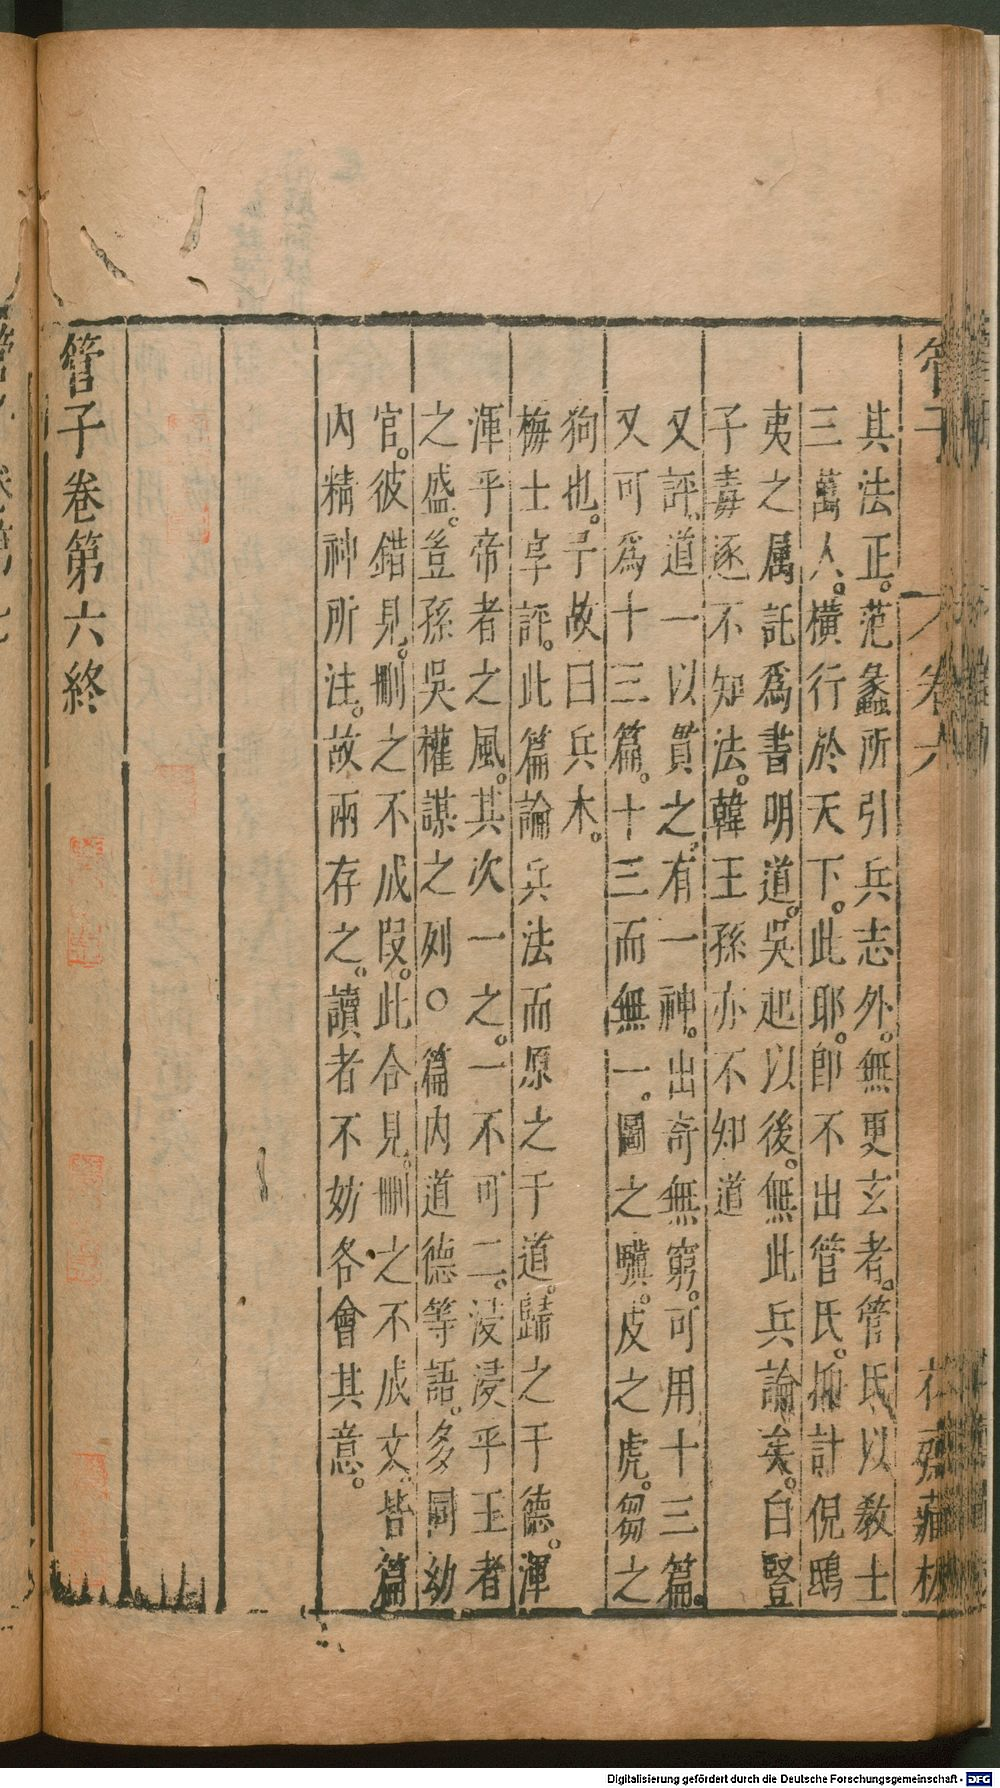 其法正。范蠡所引兵志外。無更玄者。管氏以教士
三萬人。橫行於天下。此耶。卽不出管氏。抑計倪鴟
夷之属託爲書明道。吳起以後。無此兵論矣。白豎
子毒逐不知法。韓王孫亦不知道
又評。道一以貫之。有一神。出奇無窮。可用十三篇。
又可爲十三篇。十三而無一。圖之驥。皮之虎。芻之
狗也。予故曰兵本。
梅士享評。此篇論兵法而原之于道。歸之于德。渾
渾乎帝者之風。其次一之。一不可二。浸浸乎王者
之盛。豈孫吳權謀之列○篇内道德等語。多同幼
官。彼錯見。刪之不成叚。此合見。刪之不成文。皆篇
内精神所注。故兩存之。讀者不妨各會其意。
管子卷第六終
Digitalisierung gefördert durch die Deutsche Forschungsgemeinschaft - DFG